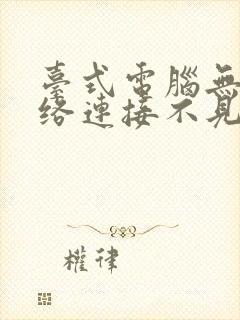 臺式電腦無
絡連接不見
權律